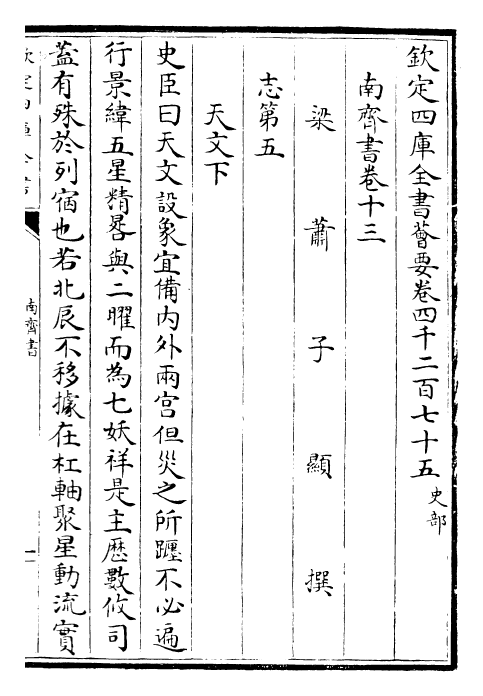 欽定四庫全書薈要卷四千二百七十五 史部
南齊書卷十三
梁 蕭 子 顯 撰
志第五
天文下
史臣曰天文設象宜備內外兩宮但災之所躔不必遍
行景緯五星精晷與二曜而為七妖祥是主歷數攸司
蓋有殊於列宿也若北辰不移據在杠軸聚星動流實
南齊書
一